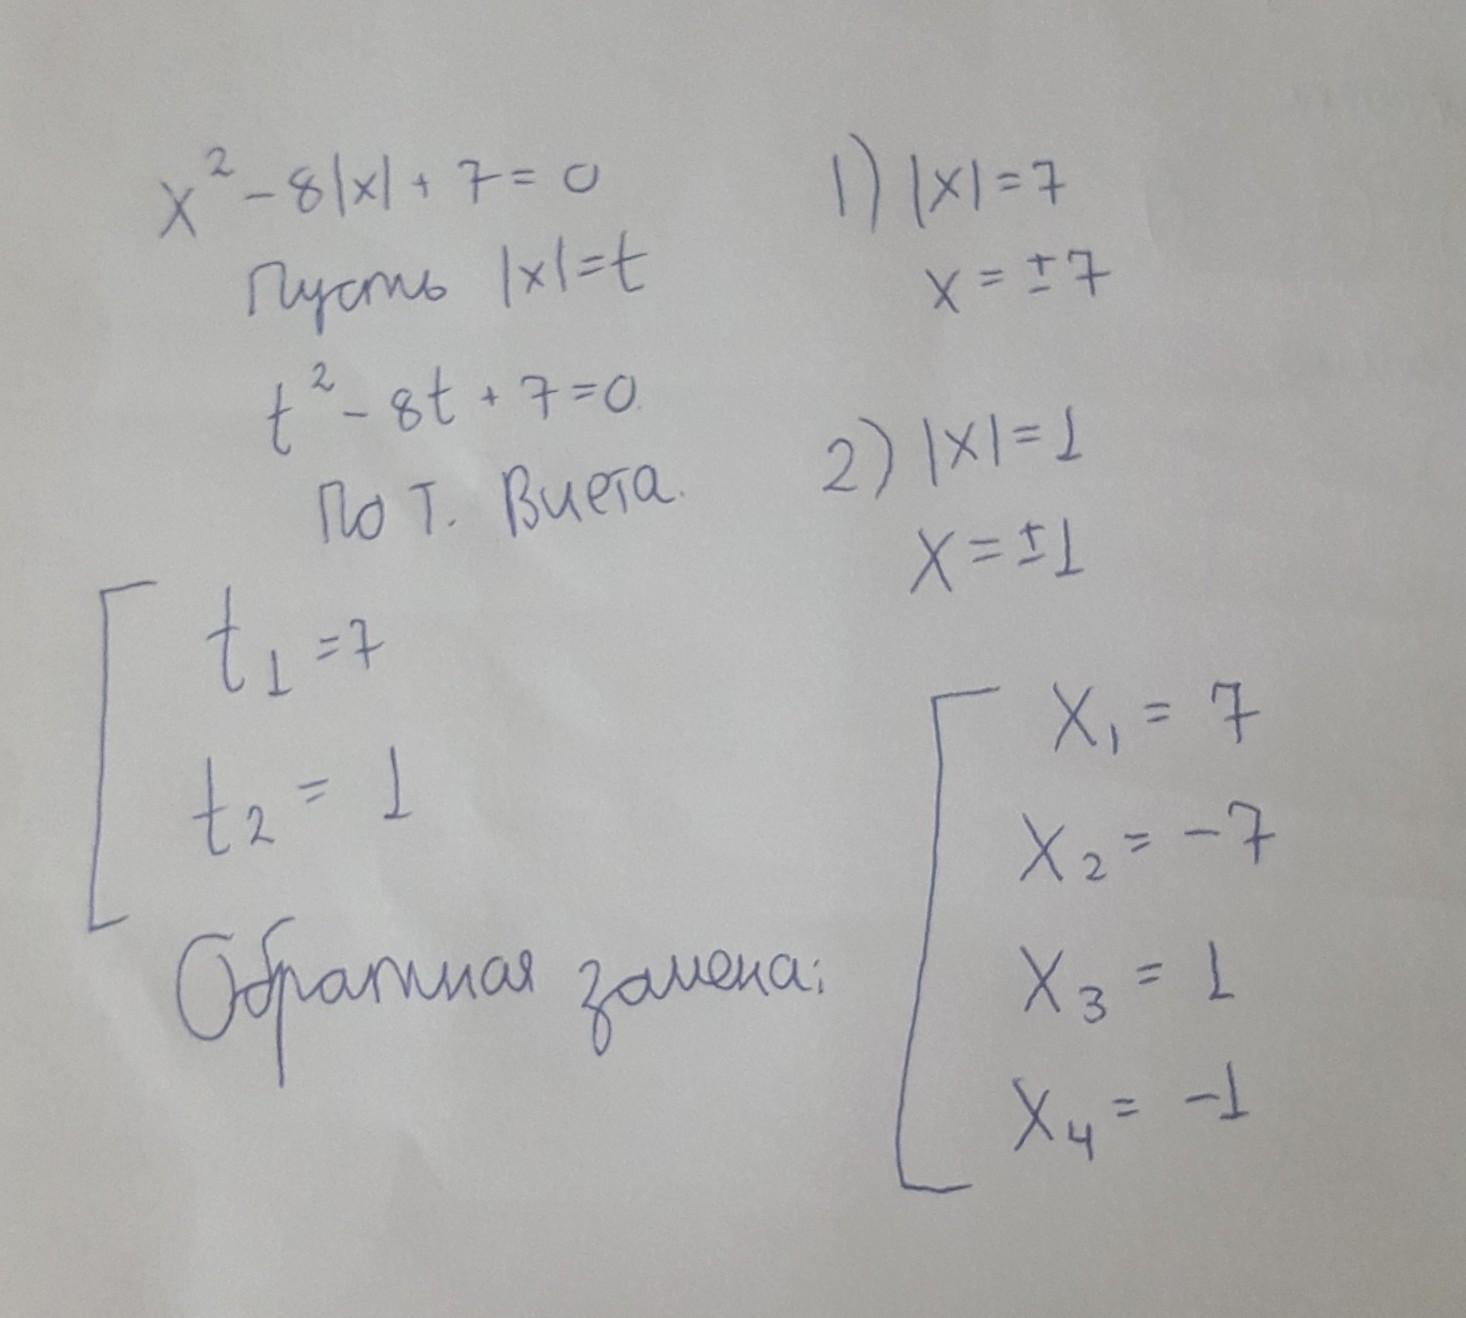 x² - 8|x| + 7 = 0
Пусть |x| = t
t² - 8t + 7 = 0
По т. Виета.
t₁ = 7
t₂ = 1
Обратная замена:
1) |x| = 7
x = ±7
2) |x| = 1
x = ±1
x₁ = 7
x₂ = -7
x₃ = 1
x₄ = -1